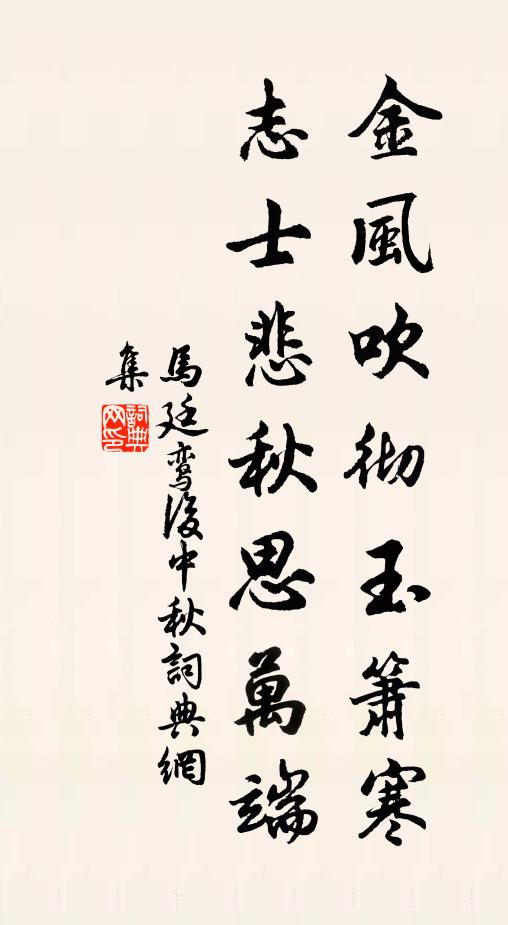 金風吹彻玉簫寒
志士悲秋思萬端
馬廷鸾後中秋詞典網
集
詞典
网印